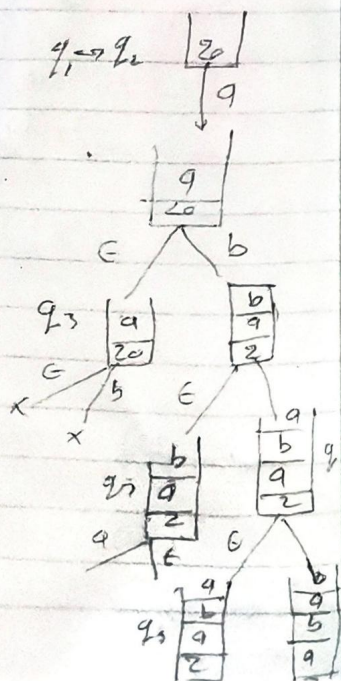 q₁ → q₂
z₀
a
a
z₀
ε b
q₃
a
z₀
b
a
z
ε b
x
x
ε a
q₃
b
a
z
a
b
a
z
q
a ε
ε b
q₃
a
b
a
z
a
b
a